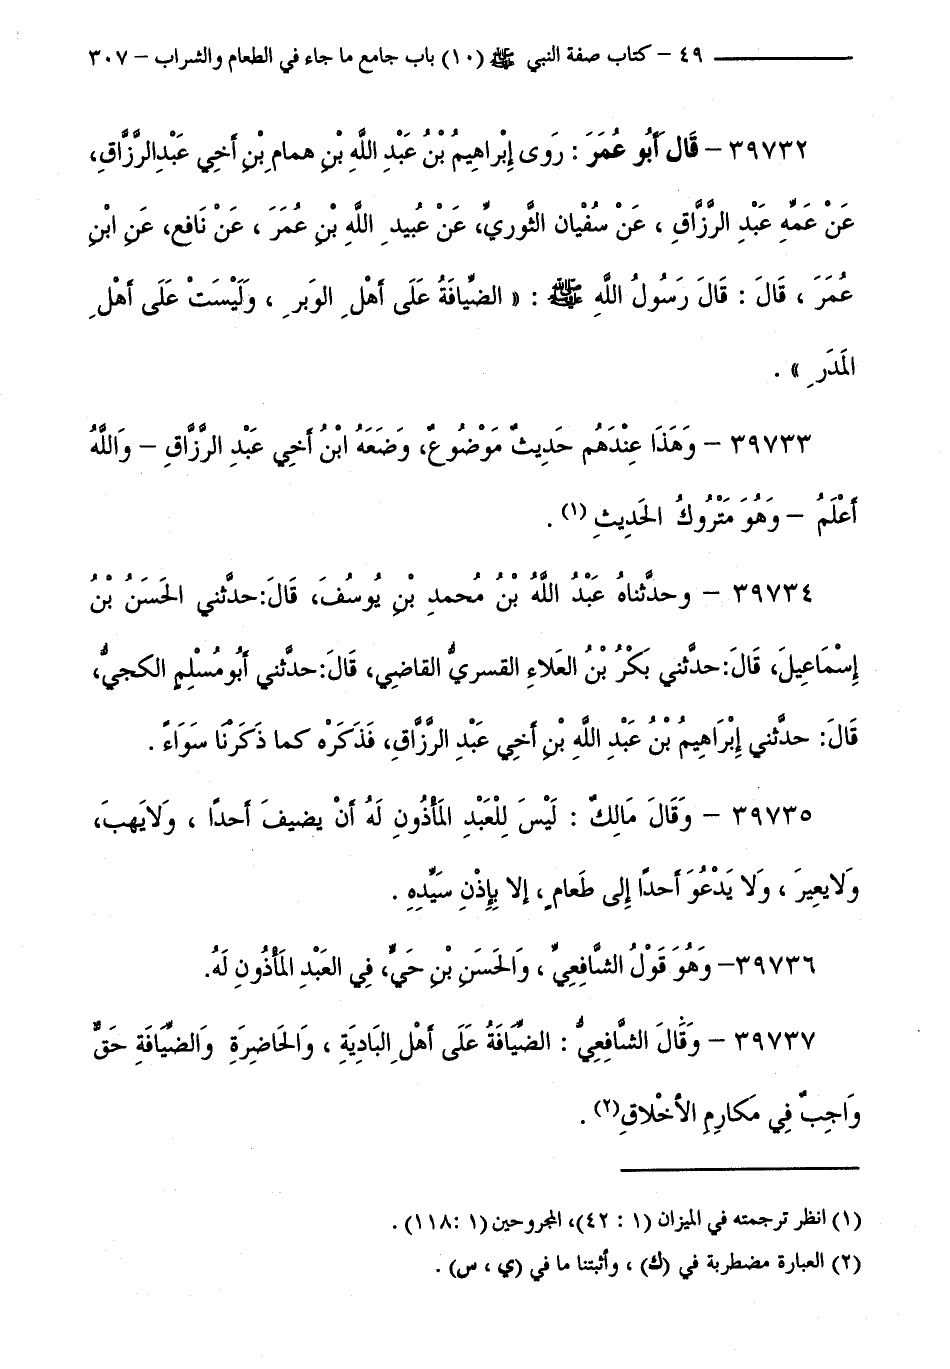 ٤٩ – كتاب صفة النبي ﷺ (١٠) باب جامع ما جاء في الطعام والشراب – ٣٠٧
٣٩٧٣٢ – قَالَ أَبُو عُمَرَ : رَوى إِبْراهِيمُ بْنُ عَبْدِ اللَّهِ بْنِ همامِ بْنِ أَخِي عَبْدِالرَّزَّاقِ،
عَنْ عَمِّهِ عَبْدِ الرَّزَّاقِ ، عَنْ سُفْيان الثَّوريِّ، عَنْ عُبيدِ اللَّهِ بْنِ عُمَرَ ، عَنْ نَافعٍ، عَنِ ابْنِ
عُمَرَ ، قَالَ : قَالَ رَسُولُ اللَّهِ ﷺ : « الضِّيافَةُ عَلَى أَهْلِ الوَبرِ ، وَلَيْسَتْ عَلَى أَهْلِ
المَدَرِ » .
٣٩٧٣٣ – وَهَذَا عِنْدَهُم حَدِيثٌ مَوْضُوعٌ، وَضَعَهُ ابْنُ أَخِي عَبْدِ الرَّزَّاقِ – وَاللَّهُ
أَعْلَمُ – وَهُوَ مَتْرُوكُ الحَدِيثِ (١) .
٣٩٧٣٤ – وحدَّثناهُ عَبْدُ اللَّهُ بْنُ مُحمدِ بْنِ يُوسُفَ، قَالَ:حدثَّني الحَسَنُ بْنُ
إِسْمَاعِيلَ، قَالَ:حدثَّني بَكْرُ بْنُ العَلاءِ القسريُّ القاضِي، قَالَ:حدثَّني أَبُو مُسْلِمٍ الكجيُّ،
قَالَ: حدثَّني إِبْرَاهِيمُ بْنُ عَبْدِ اللَّهِ بْنِ أَخِي عَبْدِ الرَّزَّاقِ، فَذَكَرَهُ كما ذَكَرْنَا سَوَاءً .
٣٩٧٣٥ – وَقَالَ مَالِكٌ : لَيْسَ لِلْعَبْدِ المَأْذُونِ لَهُ أَنْ يضيفَ أَحدًا ، وَلايَهبَ،
وَلايعِيرَ ، وَلا يَدْعُوَ أَحدًا إِلى طَعامٍ، إِلا بِإِذْنِ سَيِّدِهِ .
٣٩٧٣٦– وَهُوَ قَوْلُ الشَّافِعيِّ ، وَالحَسَنِ بْنِ حَيٍّ، فِي العَبْدِ المَأْذُونِ لَهُ.
٣٩٧٣٧ – وَقَالَ الشَّافِعِيُّ : الضِّيَافَةُ عَلَى أَهْلِ البَادِيَةِ ، وَالحَاضِرَةِ وَالضِّيَافَةِ حَقٌّ
وَاجِبٌ فِي مَكارِمِ الأَخْلاقِ(٢) .
(١) انظر ترجمته في الميزان (١ : ٤٢)، المجروحين (١ :١١٨) .
(٢) العبارة مضطربة في (ك) ، وأثبتنا ما في (ي ، س) .